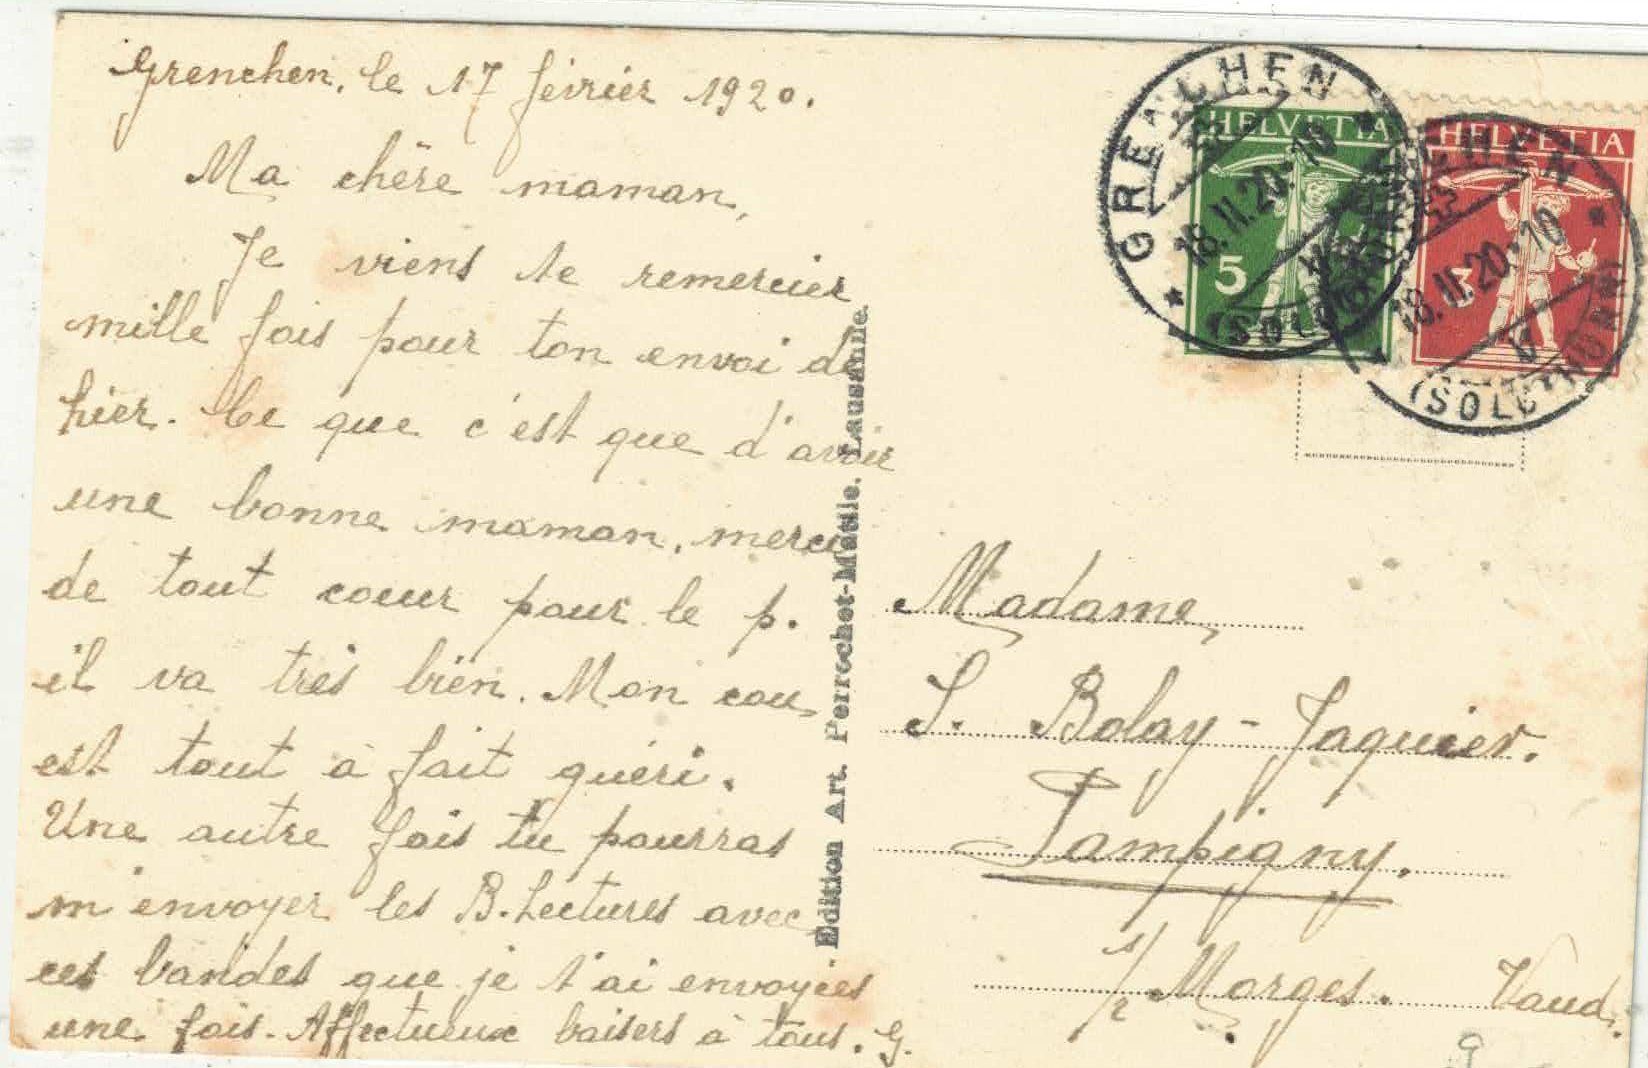 Grenchen, le 17 février 1920.
Ma chère maman,
Je viens te remercier
mille fois pour ton envoi de
hier. Ce que c'est que d'avoir
une bonne maman, merci
de tout coeur pour le p.
il va très bien. Mon cou
est tout à fait guéri.
Une autre fois tu pourras
m'envoyer les B. Lectures avec
ces bandes que je t'ai envoyées
une fois. Affectueux baisers à tous. G.
Edition Art. Perrochet-Matile, Lausanne.
GRENCHEN
18.II.20.-10
(SOLOTHURN)
HELVETIA
5
GRENCHEN
18.II.20.-10
V
(SOLOTHURN)
HELVETIA
Madame,
S. Bolay-Jaquier.
Pampigny.
s/ Morges. Vaud.